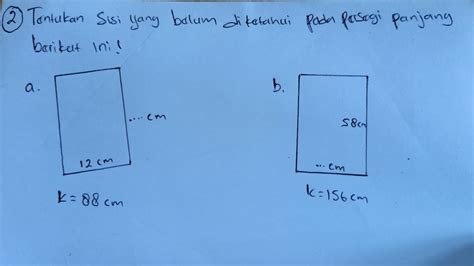 ② Tentukan Sisi yang belum diketahui pada persegi panjang
berikut ini!
a.
.... cm
12 cm
k = 88 cm
b.
58cm
... cm
k = 156 cm